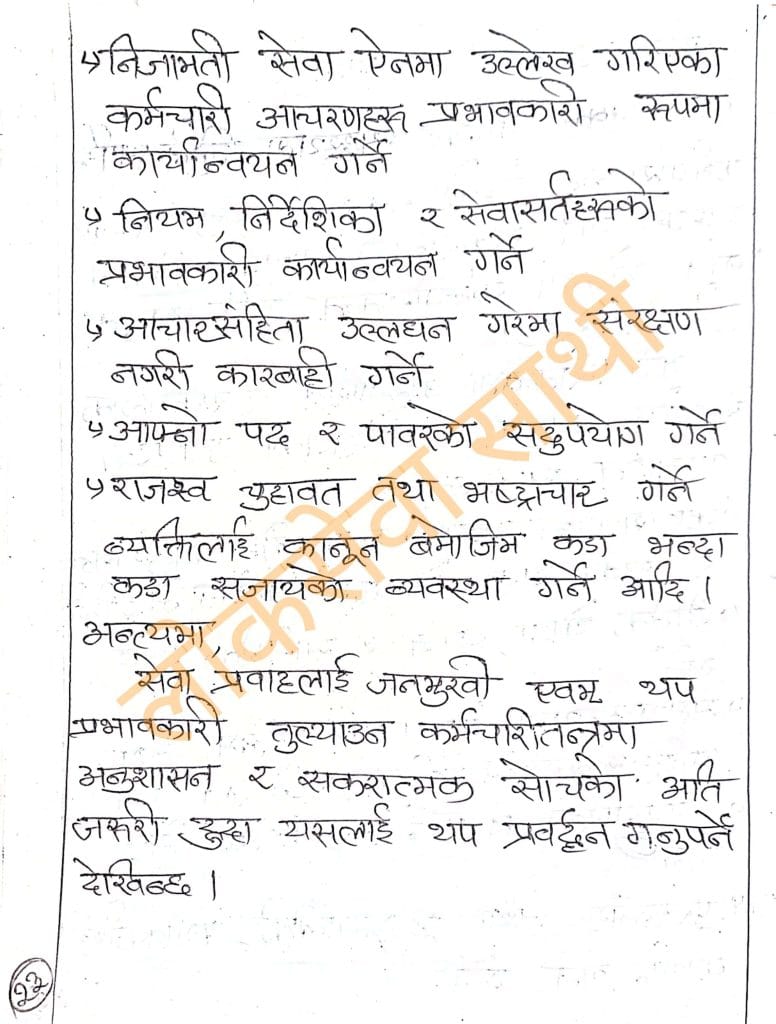 ↳ निजामती सेवा ऐनमा उल्लेख गरिएका
कर्मचारी आचरणहरू प्रभावकारी रूपमा
कार्यान्वयन गर्ने
↳ नियम, निर्देशिका र सेवासर्तहरूको
प्रभावकारी कार्यान्वयन गर्ने
↳ आचारसंहिता उल्लघन गरेमा संरक्षण
नगरी कारबाही गर्ने
↳ आफ्नो पद र पावरको सदुपयोग गर्ने
↳ राजश्व चुहावत तथा भष्ट्राचार गर्ने
व्यक्तिलाई कानून बमोजिम कडा भन्दा
कडा सजायको व्यवस्था गर्ने आदि।
अन्त्यमा,
सेवा प्रवाहलाई जनमुखी एवम् थप
प्रभावकारी तुल्याउन कर्मचारीतन्त्रमा
अनुशासन र सकरात्मक सोचको अति
जरुरी हुदा यसलाई थप प्रवर्द्धन गनुपर्ने
देखिन्छ।
लोकसेवा साथी
२३